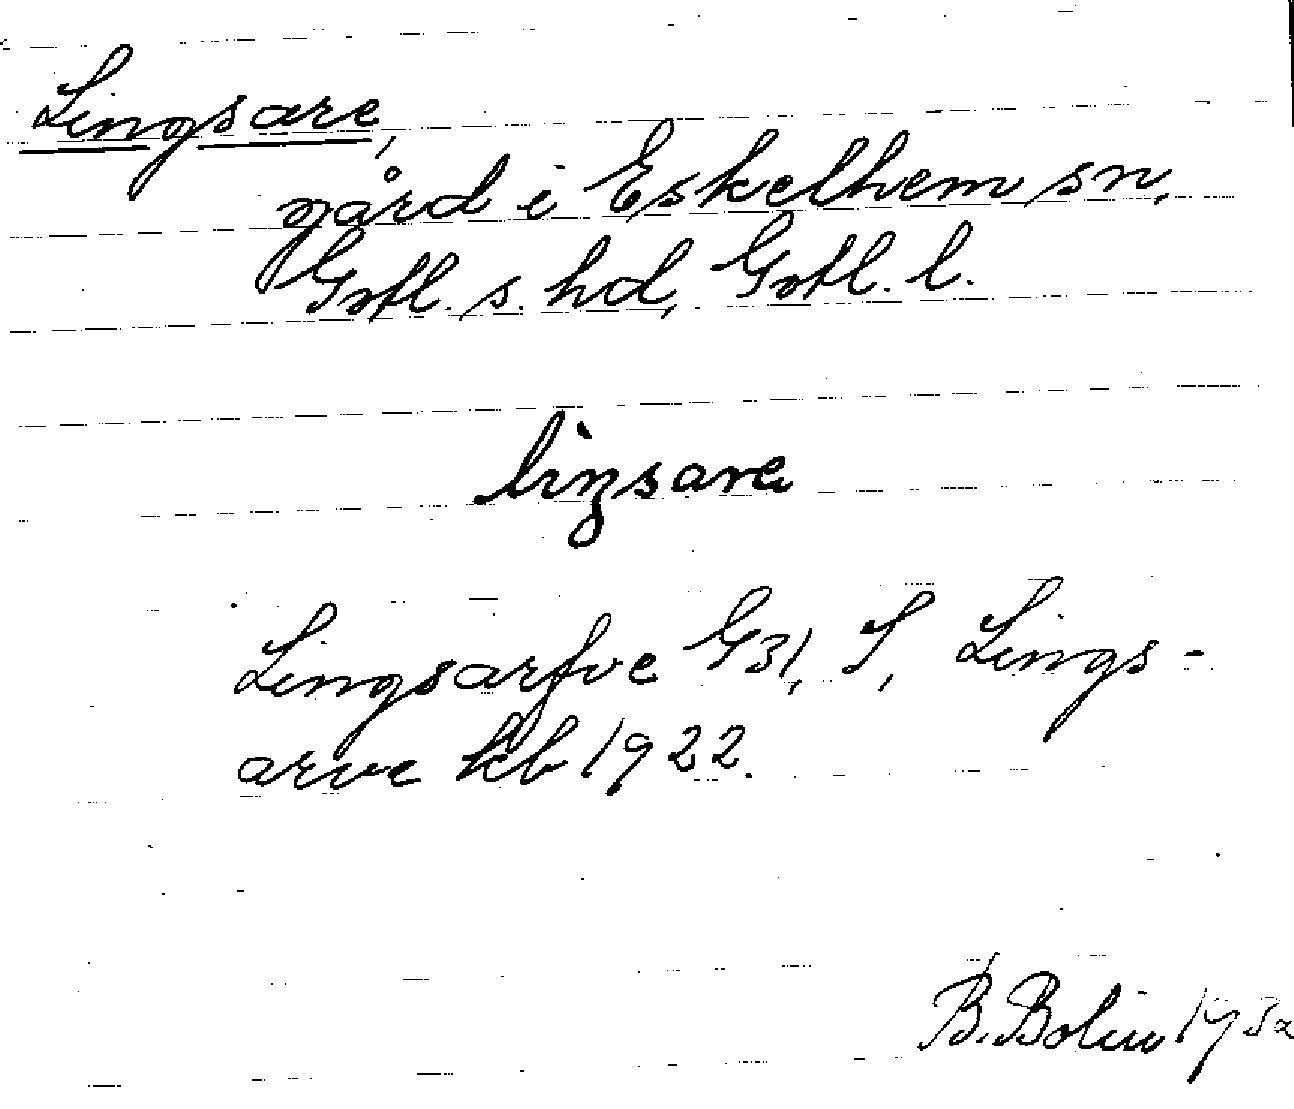 Lingsare,
gård i Eskelhem sn,
Gotl. s. hd, Gotl. l.
lìŋsare
Lingsarfve G31, S, Lings-
arve kb 1922.
B. Bolin 1932